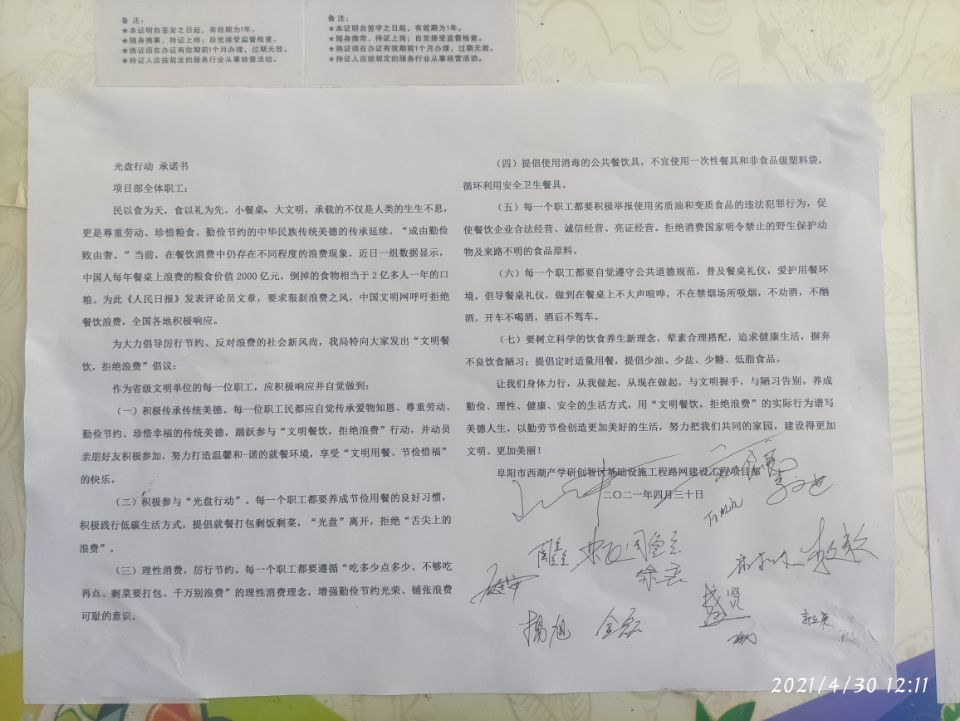 备 注：
★本证明自签发之日起，有效期为1年。
★随身携事，持证上岗；自觉接受监督检查。
★换证须在办证有效期前1个月办理，过期无效。
★持证人应按规定的服务行业从事经营活动。
备 注：
★本证明自签字之日起，有效期为1年。
★随身携带，持证上岗；自觉接受监督检查。
★换证须在办证有效期前1个月办理，过期无效。
★持证人应按规定的服务行业从事经营活动。
光盘行动 承诺书
项目部全体职工：
民以食为天，食以礼为先。小餐桌，大文明，承载的不仅是人类的生生不息，
更是尊重劳动、珍惜粮食、勤俭节约的中华民族传统美德的传承延续。“成由勤俭
败由奢。”当前，在餐饮消费中仍存在不同程度的浪费现象，近日一组数据显示，
中国人每年餐桌上浪费的粮食价值2000亿元，倒掉的食物相当于2亿多人一年的口
粮。为此《人民日报》发表评论员文章，要求狠刹浪费之风，中国文明网呼吁拒绝
餐饮浪费，全国各地积极响应。
为大力倡导厉行节约、反对浪费的社会新风尚，我局特向大家发出“文明餐
饮，拒绝浪费”倡议：
作为省级文明单位的每一位职工，应积极响应并自觉做到：
（一）积极传承传统美德。每一位职工民都应自觉传承爱物知恩、尊重劳动、
勤俭节约、珍惜幸福的传统美德，踊跃参与“文明餐饮，拒绝浪费”行动，并动员
亲朋好友积极参加，努力打造温馨和-谐的就餐环境，享受“文明用餐、节俭惜福”
的快乐。
（二）积极参与“光盘行动”。每一个职工都要养成节俭用餐的良好习惯，
积极践行低碳生活方式，提倡就餐打包剩饭剩菜，“光盘”离开，拒绝“舌尖上的
浪费”。
（三）理性消费，厉行节约。每一个职工都要遵循“吃多少点多少、不够吃
再点、剩菜要打包、千万别浪费”的理性消费理念，增强勤俭节约光荣、铺张浪费
可耻的意识。
（四）提倡使用消毒的公共餐饮具，不宜使用一次性餐具和非食品级塑料袋，
循环利用安全卫生餐具。
（五）每一个职工都要积极举报使用劣质油和变质食品的违法犯罪行为，促
使餐饮企业合法经营、诚信经营、亮证经营。拒绝消费国家明令禁止的野生保护动
物及来路不明的食品原料。
（六）每一个职工都要自觉遵守公共道德规范，普及餐桌礼仪，爱护用餐环
境，倡导餐桌礼仪，做到在餐桌上不大声喧哗，不在禁烟场所吸烟，不劝酒，不酗
酒，开车不喝酒，酒后不驾车。
（七）要树立科学的饮食养生新理念，荤素合理搭配，追求健康生活，摒弃
不良饮食陋习；提倡定时适量用餐，提倡少油、少盐、少糖、低脂食品。
让我们身体力行，从我做起，从现在做起，与文明握手，与陋习告别，养成
勤俭、理性、健康、安全的生活方式，用“文明餐饮，拒绝浪费”的实际行为谱写
美德人生，以勤劳节俭创造更加美好的生活，努力把我们共同的家园，建设得更加
文明、更加美丽！
阜阳市西湖产学研创智区基础设施工程路网建设工程项目部
二〇二一年四月三十日
杨旭
金磊
2021/4/30 12:11